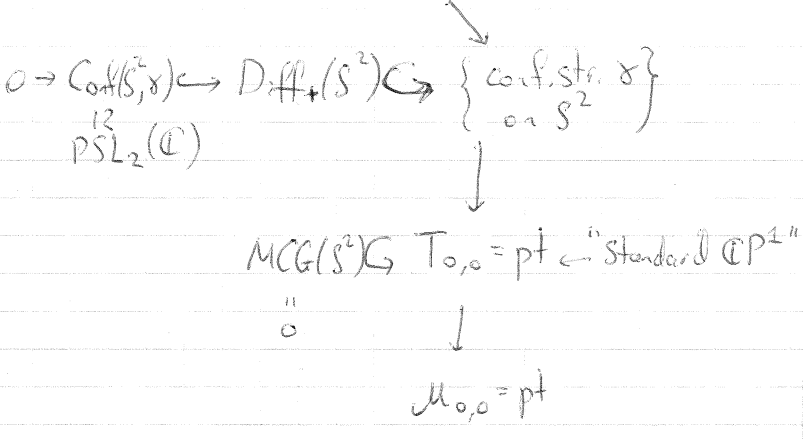 0 → Conf(S², γ) ↪ Diff₊(S²) ↻ { conf. str. γ
on S² }
≅
PSL₂(ℂ)
MCG(S²) ↻ T₀,₀ = pt ← "Standard ℂP¹"
=
0
M₀,₀ = pt